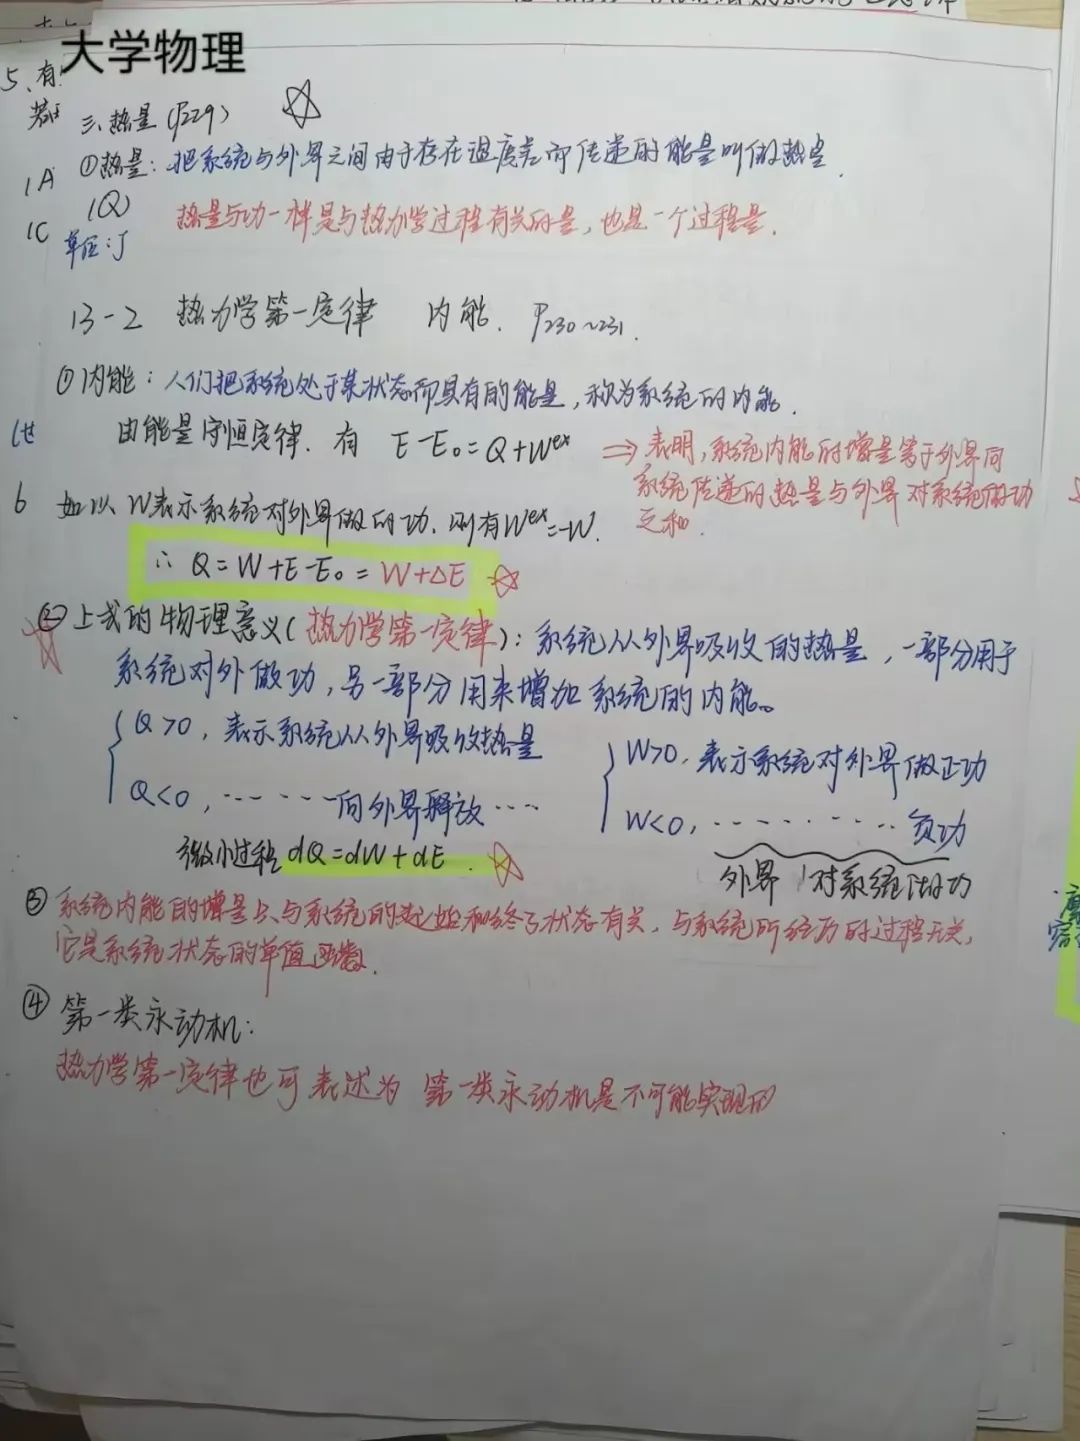 大学物理
5、有
三、热量(P229)
①热量：把系统与外界之间由于存在温度差而传递的能量叫做热量.
1A
(Q)
热量与功一样是与热力学过程有关的量，也是一个过程量.
1C
单位：J
13-2 热力学第一定律 内能. P230~231.
①内能：人们把系统处于某状态而具有的能量，称为系统的内能.
由能量守恒定律.有 E-E₀=Q+Wᵉˣ
⇒表明，系统内能的增量等于外界向
系统传递的热量与外界对系统做功
之和.
6
如以W表示系统对外界做的功.则有Wᵉˣ=-W.
∴ Q=W+E-E₀=W+ΔE
②上式的物理意义(热力学第一定律)：系统从外界吸收的热量，一部分用于
系统对外做功，另一部分用来增加系统的内能。
Q>0，表示系统从外界吸收热量
W>0，表示系统对外界做正功
Q<0，…………向外界释放……
W<0，…………负功
微小过程dQ=dW+dE.
外界对系统做功
③系统内能的增量只与系统的起始和终了状态有关，与系统所经历的过程无关，
它是系统状态的单值函数.
④第一类永动机：
热力学第一定律也可表述为 第一类永动机是不可能实现的